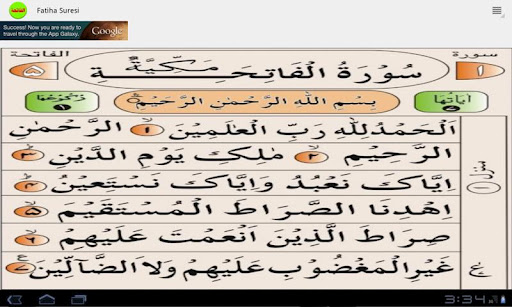 Fatiha Suresi
Success! Now you are ready to
travel through the App Galaxy.
Google
سورة
الفاتحة
١ سُوْرَةُ الْفَاتِحَةِ مَكِّيَّةٌ ٥
اٰیَاتُهَا بِسْمِ اللهِ الرَّحْمٰنِ الرَّحِيْمِ رُكُوْعُهَا ١
اَلْحَمْدُ لِلّٰهِ رَبِّ الْعٰلَمِيْنَ ١ الرَّحْمٰنِ
الرَّحِيْمِ ٢ مٰلِكِ يَوْمِ الدِّيْنِ ٣
اِيَّاكَ نَعْبُدُ وَاِيَّاكَ نَسْتَعِيْنُ ٤
اِهْدِنَا الصِّرَاطَ الْمُسْتَقِيْمَ ٥
صِرَاطَ الَّذِيْنَ اَنْعَمْتَ عَلَيْهِمْ ٦
غَيْرِ الْمَغْضُوْبِ عَلَيْهِمْ وَلَا الضَّآلِّيْنَ ٧
منزل ١
ع
3:34